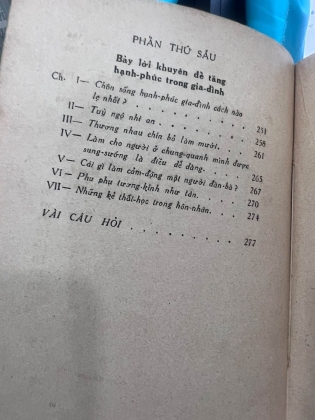 PHẦN THỨ SÁU
Bảy lời khuyên để tăng
hạnh-phúc trong gia-đình
Ch. I — Chôn sống hạnh-phúc gia-đình cách nào
lẹ nhất? . . . . . . . . 251
II — Tuỳ ngộ nhi an . . . . . . 258
III — Thương nhau chín bỏ làm mười . . . 261
IV — Làm cho người ở chung-quanh mình được
sung-sướng là điều dễ dàng . . . . 265
V — Cái gì làm cảm-động một người đàn-bà? 267
VI — Phu phụ tương-kính như tân . . . . 270
VII — Những kẻ thất-học trong hôn-nhân . . 274
VÀI CÂU HỎI . . . . . . . . 277